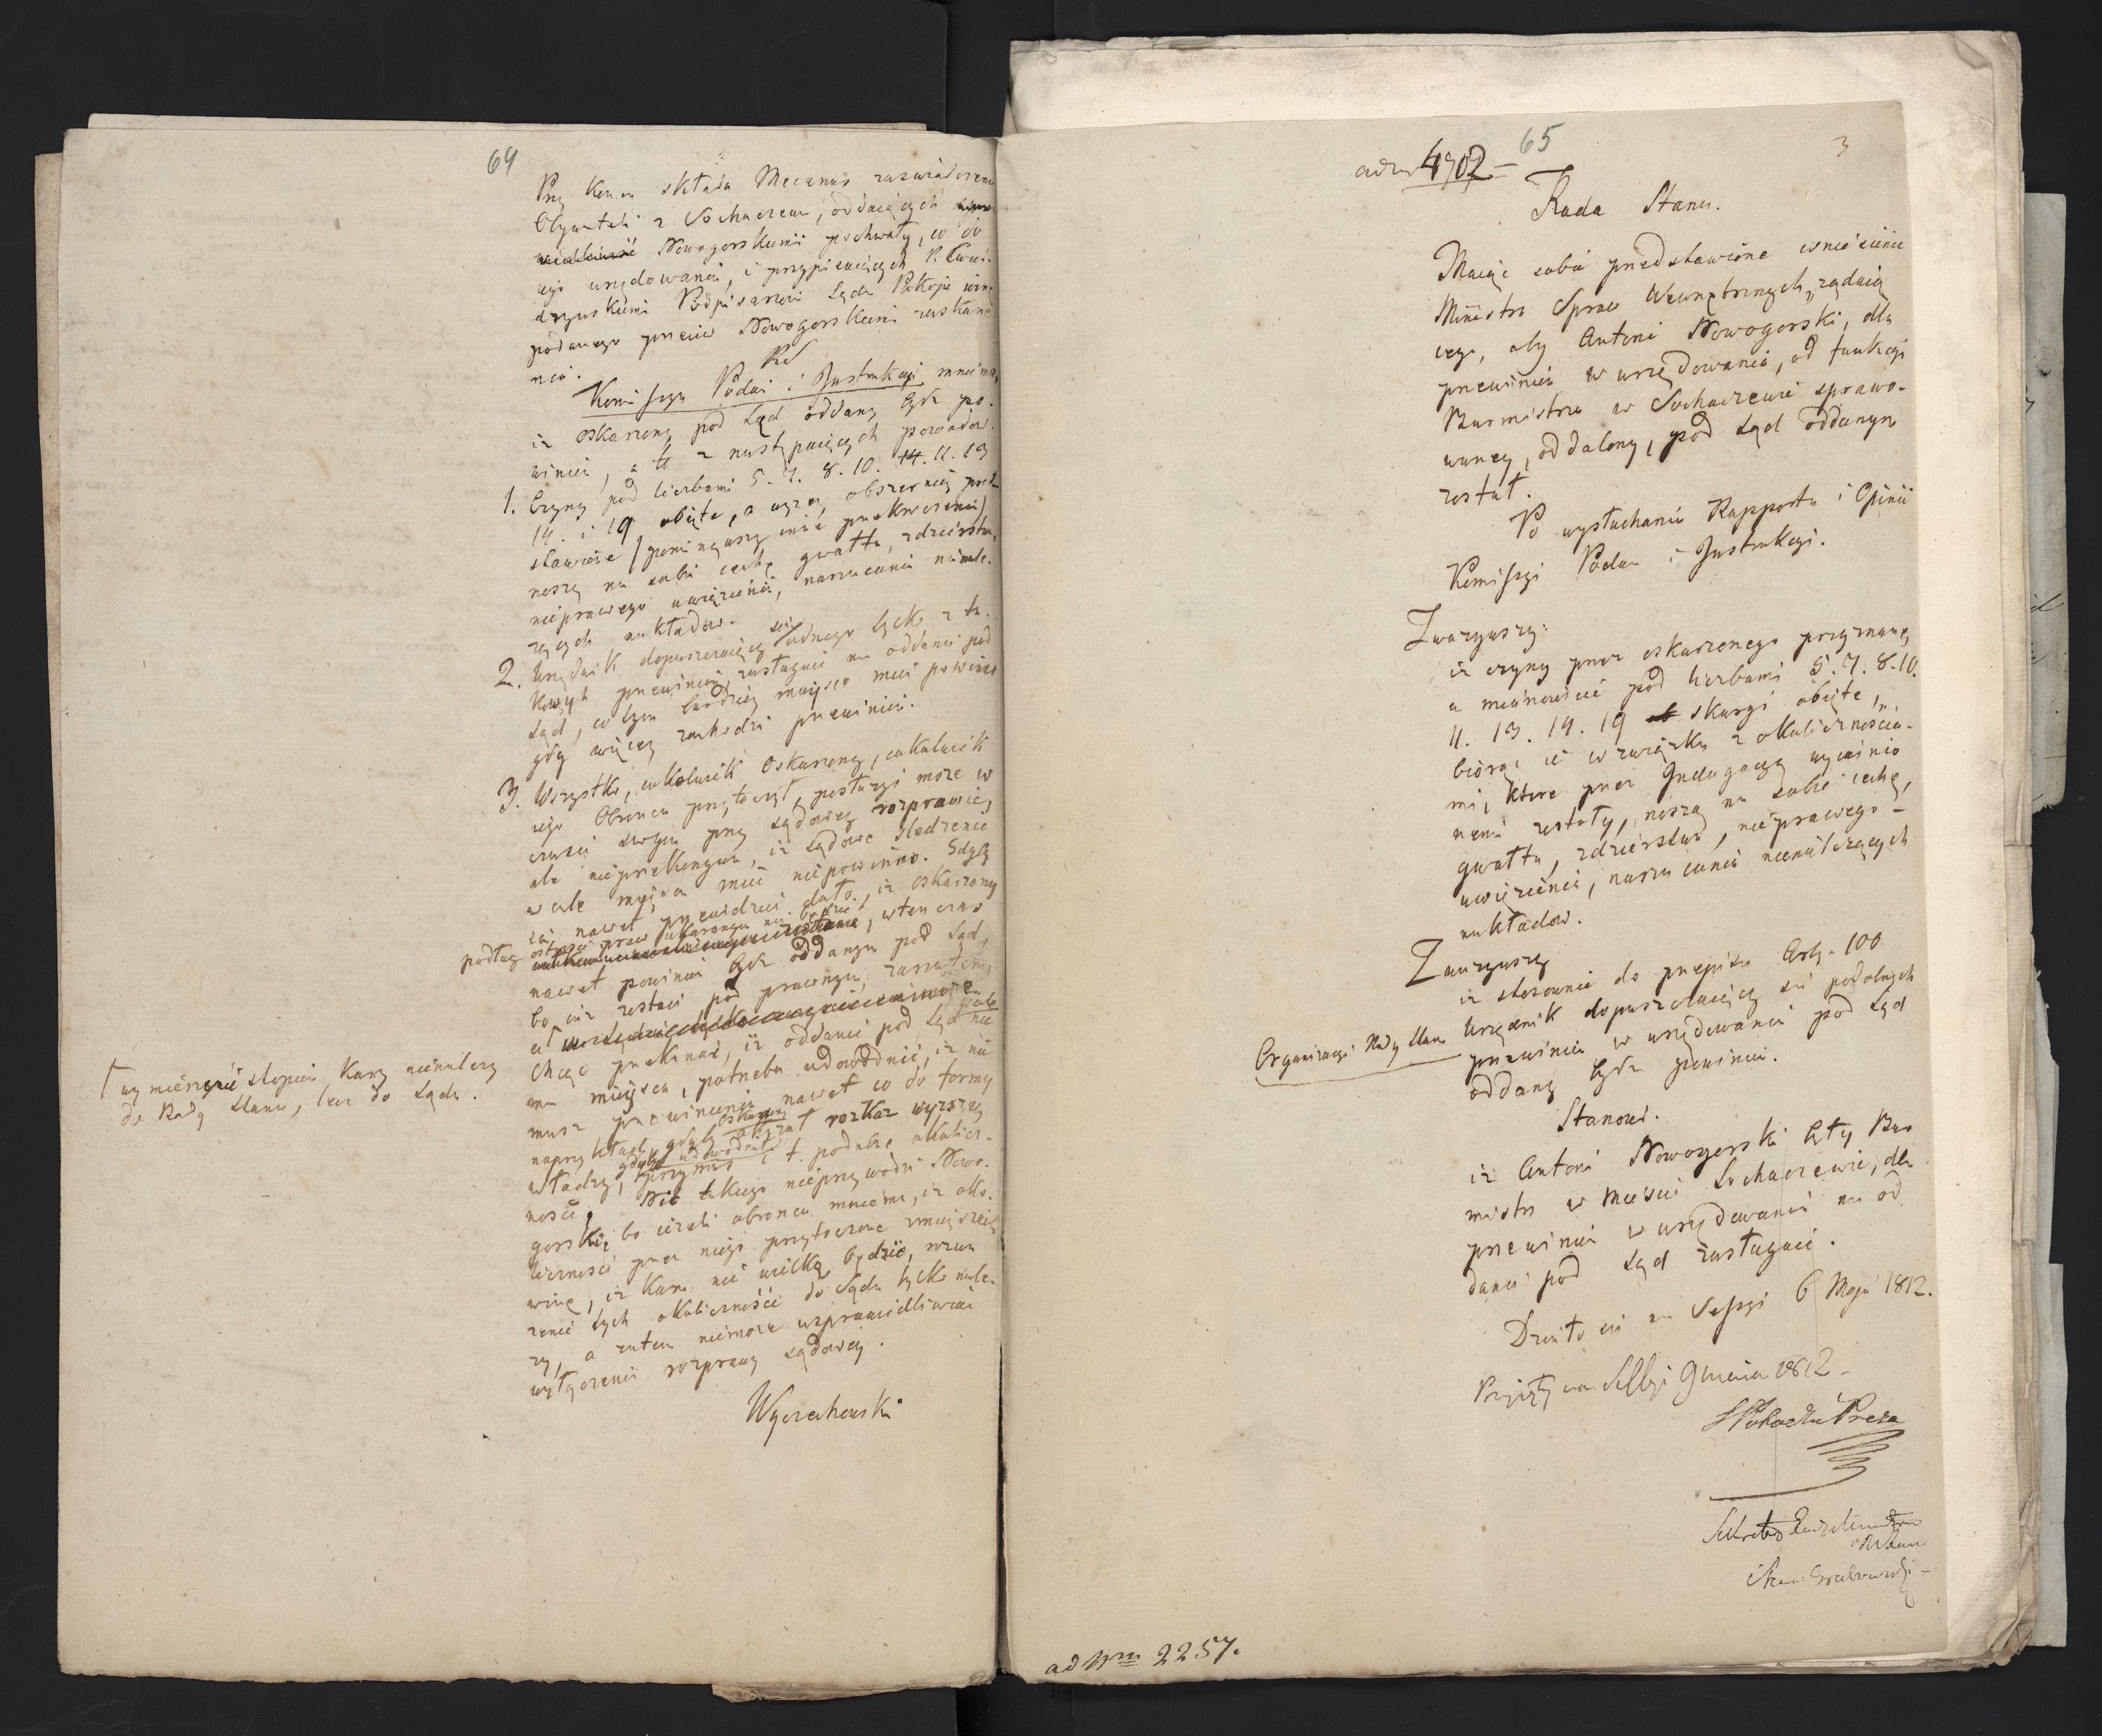 64
Przy końcu składa Mecenas zaswiadczenia
Obywateli z Sochaczewa, oddaiących
Nowogorskiemu pochwały, co do
iego urzędowania, i przypisuiących P.
Podpisarzowi Sądu Pokoju winę
podanego przeciw Nowogorskiemu zaskarże
nia.
Komissya Podań i Instrukcyi mniema,
iż oskarżony pod Sąd oddany bydź po-
winien, a to z następuiących powodow.
1. Czyny pod liczbami 5. 7. 8. 10. 11. 13
14. i 19 obięte, a wyżey obszerniey przed
stawione /pominąwszy inne przekroczenia/
noszą na sobie cechę gwałtu, zdzierstwa,
nieprawego uwięzienia, narzucania nienale-
żących nakładow.
2. Urzędnik dopuszczaiący się iednego tylko z ta-
kowych przewinień, zasługuie na oddanie pod
Sąd, co tym bardziey mieysce mieć powinno
gdy więcey zachodzi przewinień.
3. Wszystko, cokolwiek Oskarżony, cokolwiek
iego Obronca przytoczył, posłużyć może w
czasie swoym przy sądowey rozprawie,
ale nieprzekonywa, iż sądowe sledzenie
wcale mieysca mieć niepowinno. Gdyby
się nawet przewidzieć dało, iż oskarżony
podług ostrości praw ukaranym nie będzie, wtenczas
nawet powinien bydź oddanym pod Sąd,
bo iuż zostaie pod prawnym zarzutem,
a
chcąc przekonać, iż oddanie pod Sąd nie
ma mieysca, potrzeba udowodnić, iż nie
masz przewinienia nawet co do formy
naprzykład, gdyby oskarżony okazał rozkaz wyższey
władzy, gdyby udowodnił przymus i t. podobne okolicz-
ności. Nic takiego nieprzywodzi Nowo-
gorski, bo ieżeli obronca mniema, iż oko-
liczności przez niego przytoczone zmnieyszaią
winę, iż kara nie wielka będzie, rozwa
żenie tych okoliczności do Sądu tylko nale-
ży, a zatem niemoże usprawiedliwiać
wyłączenia rozprawy sądowey.
Wyczechowski
† wymierzenie stopnia kary nienależy
do Rady Stanu, lecz do Sądu.
65
3
ad Nr 4702
Rada Stanu.
Maiąc sobie przedstawione wniesienie
Ministra Spraw Wewnętrznych, żądaią
cego, aby Antoni Nowogorski, dla
przewinień w urzędowaniu, od funkcyi
Burmistrza w Sochaczewie sprawo-
waney, oddalony, pod Sąd oddanym
został.
Po wysłuchaniu Rapportu i Opinii
Komissyi Podań i Instrukcyi.
Zważywszy:
iż czyny przez oskarżonego przyznane,
a mianowicie pod liczbami 5. 7. 8. 10.
11. 13. 14. 19 skargi obięte,
biorąc ie w związku z okolicznościa-
mi, które przez Indagacyą wyiaśnio
nemi zostały, noszą na sobie cechę,
gwałtu, zdzierstwa, nieprawego-
uwięzienia, narzucania nienależących
nakładow.
Zważywszy
iż stosownie do przepisu Arty. 100
Organizacyi Rady Stanu Urzędnik dopuszczaiący się podobnych
przewinień w urzędowaniu pod Sąd
oddany bydź powinien.
Stanowi.
iż Antoni Nowogorski były Bur
mistrz w Mieście Sochaczewie, dla
przewinień w urzędowaniu na od
danie pod Sąd zasługuie.
Działo się na Sessyi 6 Maja 1812.
Przyięty na Sessyi 9 maia 1812-
SPotocki Preze
Sekretarz
Grabowski-
ad Nrm 2257.